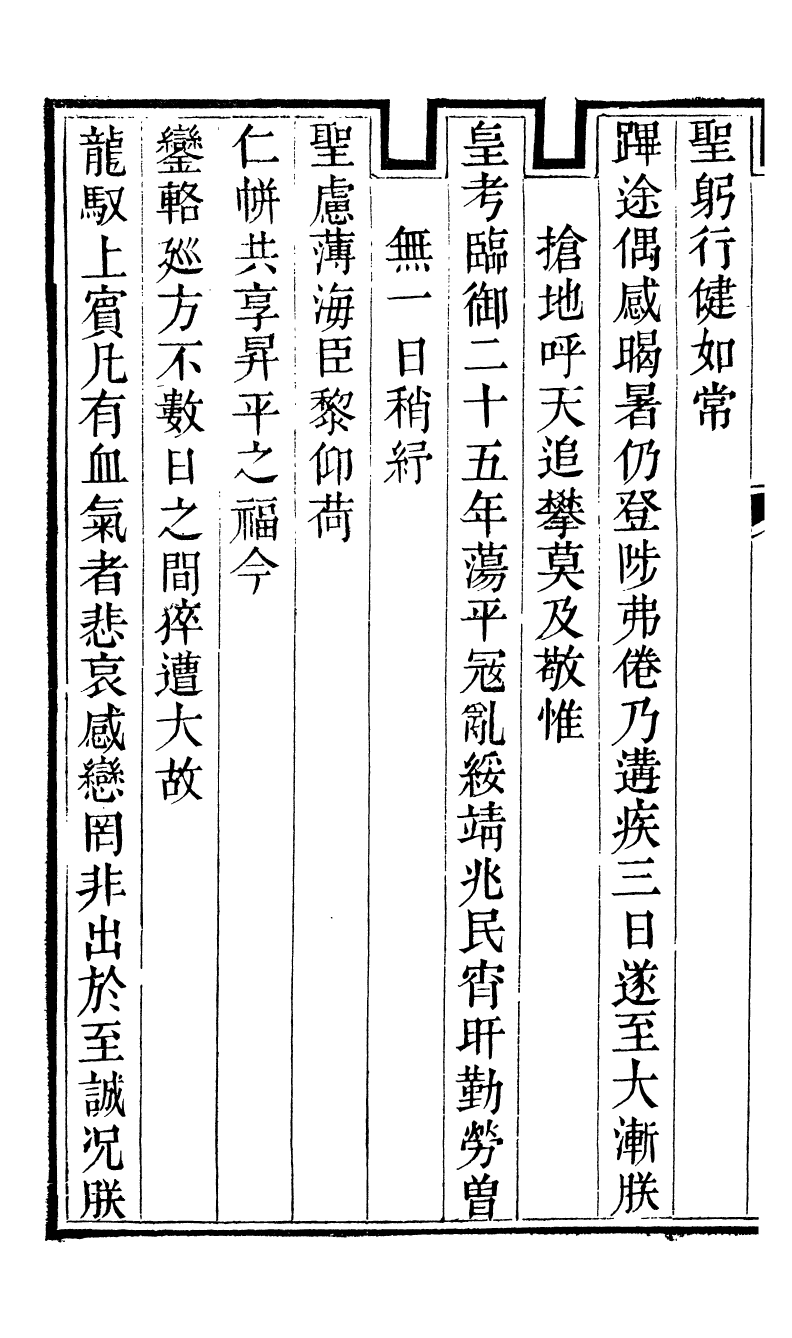 聖躬行健如常
蹕途偶感暍暑仍登陟弗倦乃遘疾三日遂至大漸朕
搶地呼天追攀莫及敬惟
皇考臨御二十五年蕩平寇亂綏靖兆民宵旰勤勞曾
無一日稍紓
聖慮薄海臣黎仰荷
仁帡共享昇平之福今
鑾輅廵方不數日之間猝遭大故
龍馭上賓凡有血氣者悲哀感戀罔非出於至誠况朕